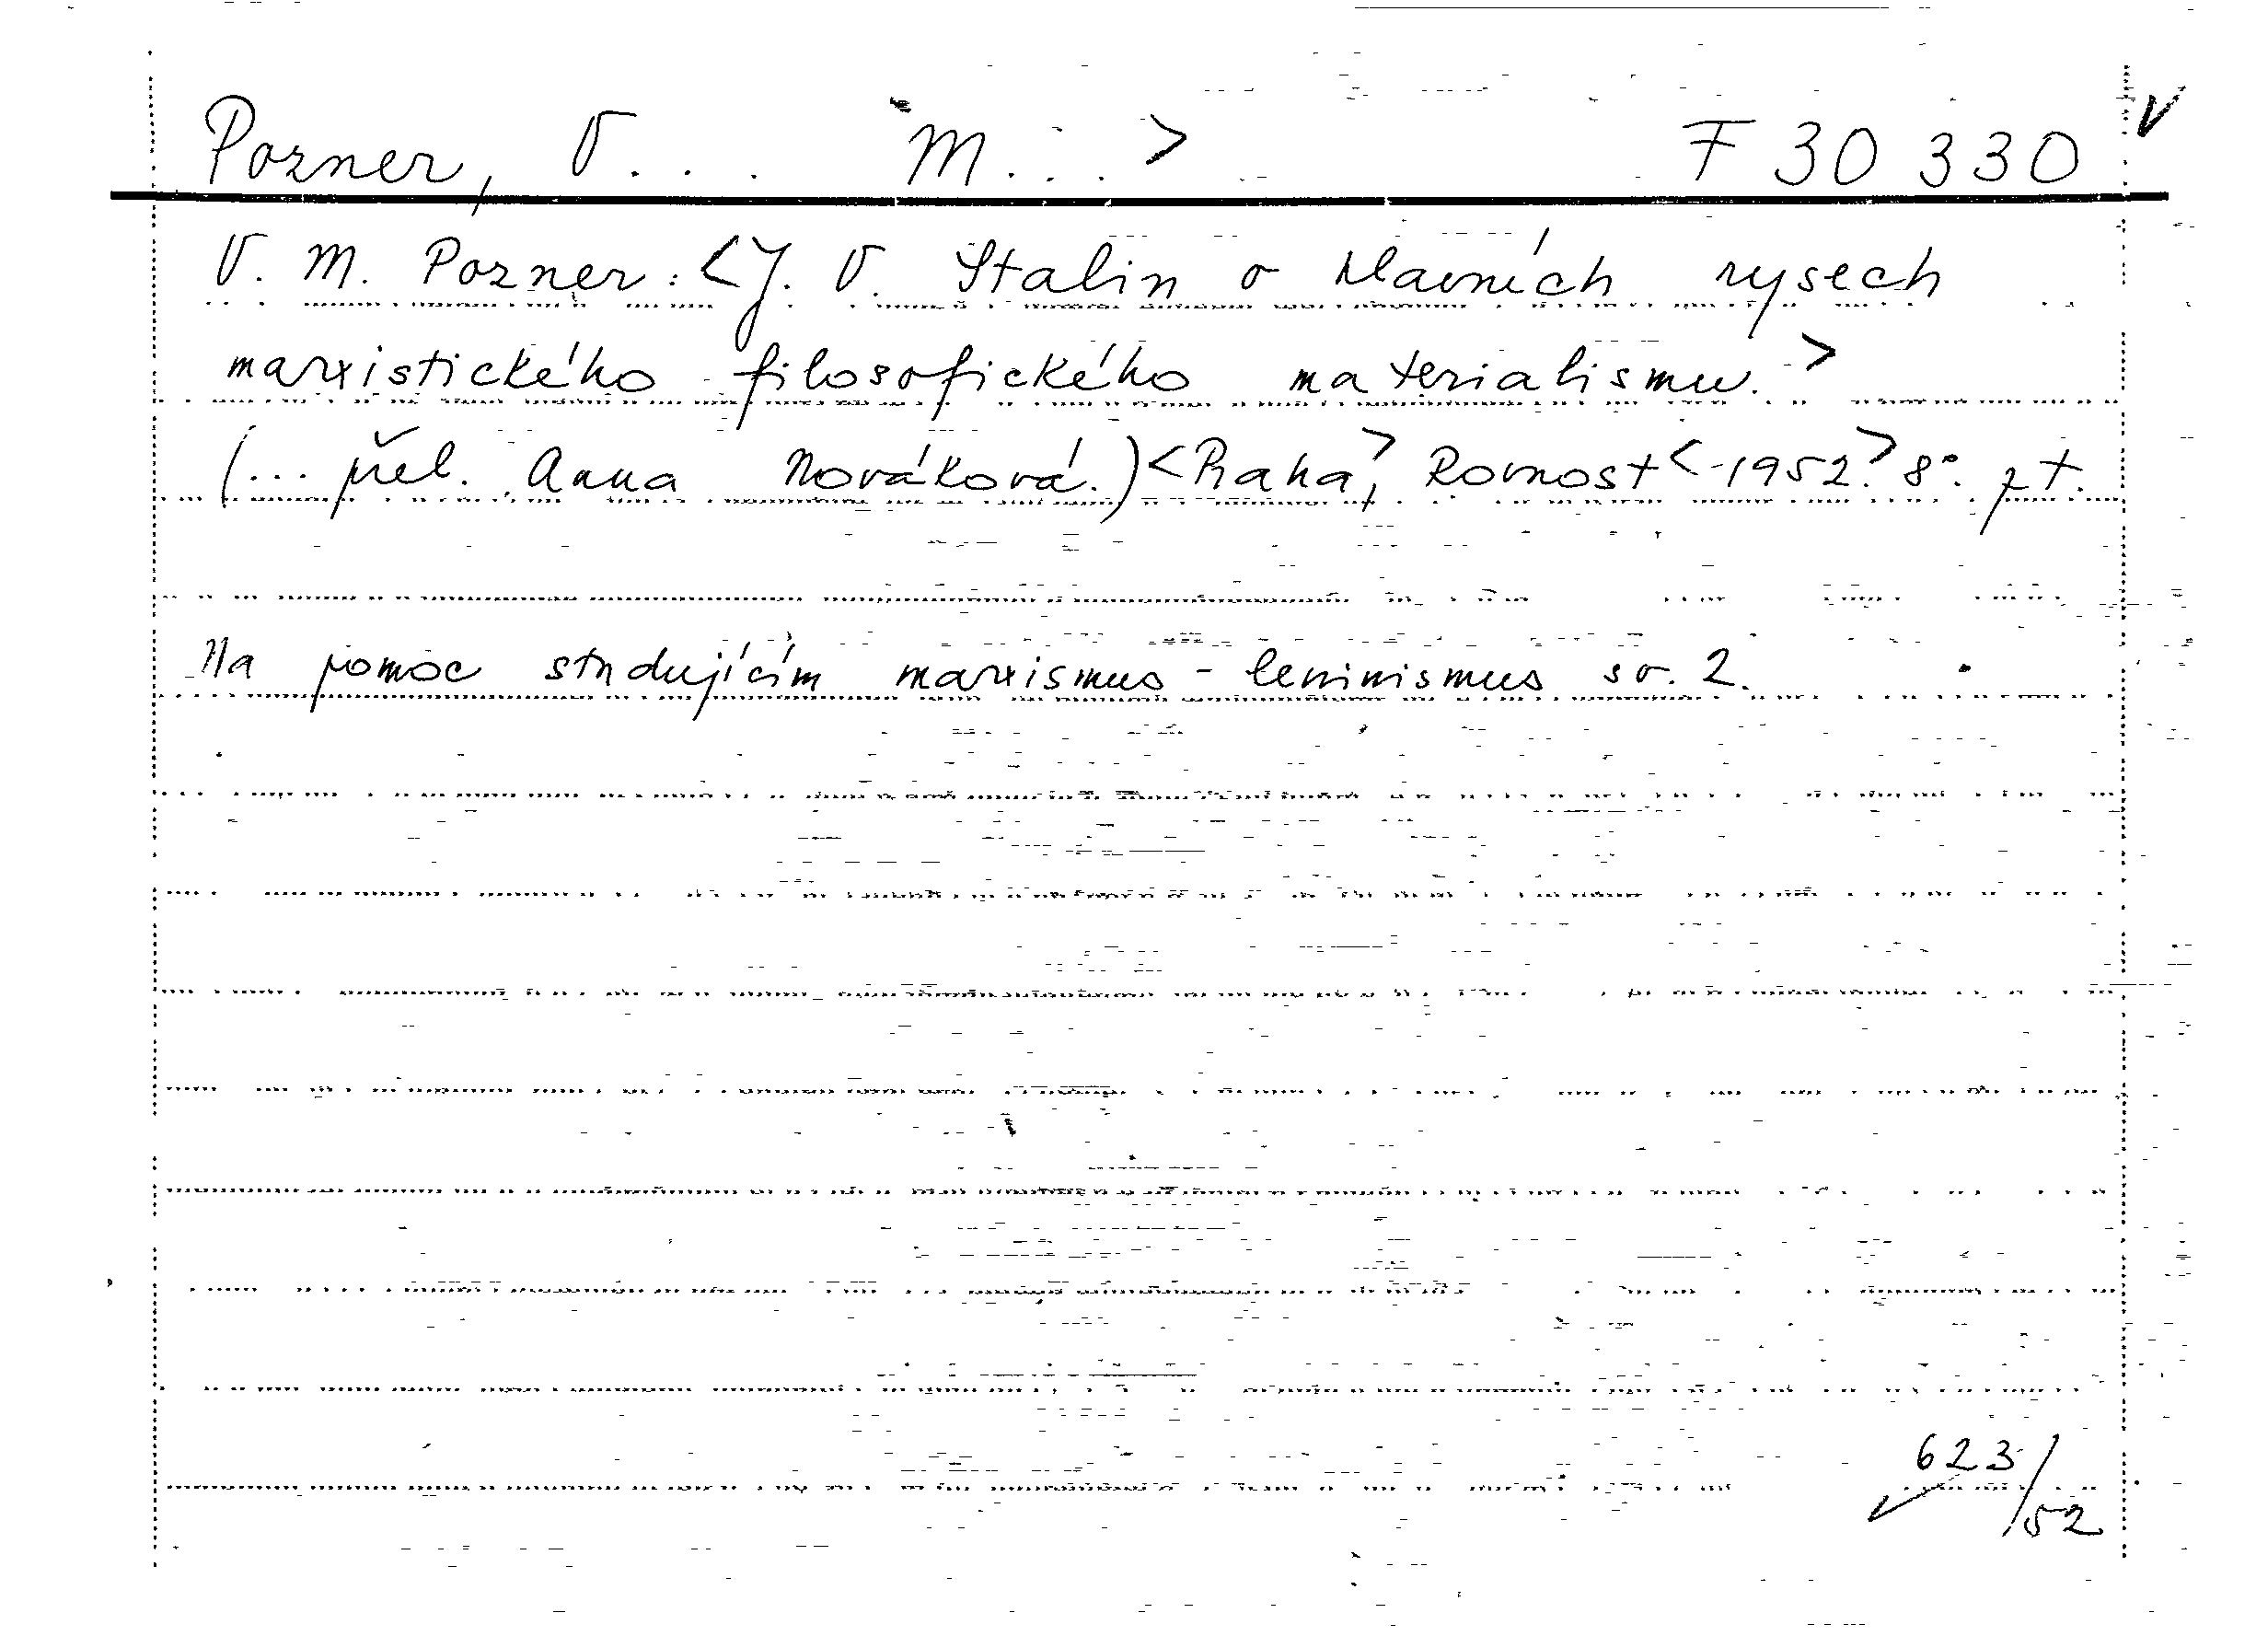 Pozner, V... M...> F 30 330 V
V. M. Pozner: <J. V. Stalin o hlavních rysech
marxistického filosofického materialismu.>
(... přel. Anna Nováková.) <Praha,> Rovnost <-1952.> 8°. pt.
Na pomoc studujícím marxismus - leninismus sv. 2.
623/52